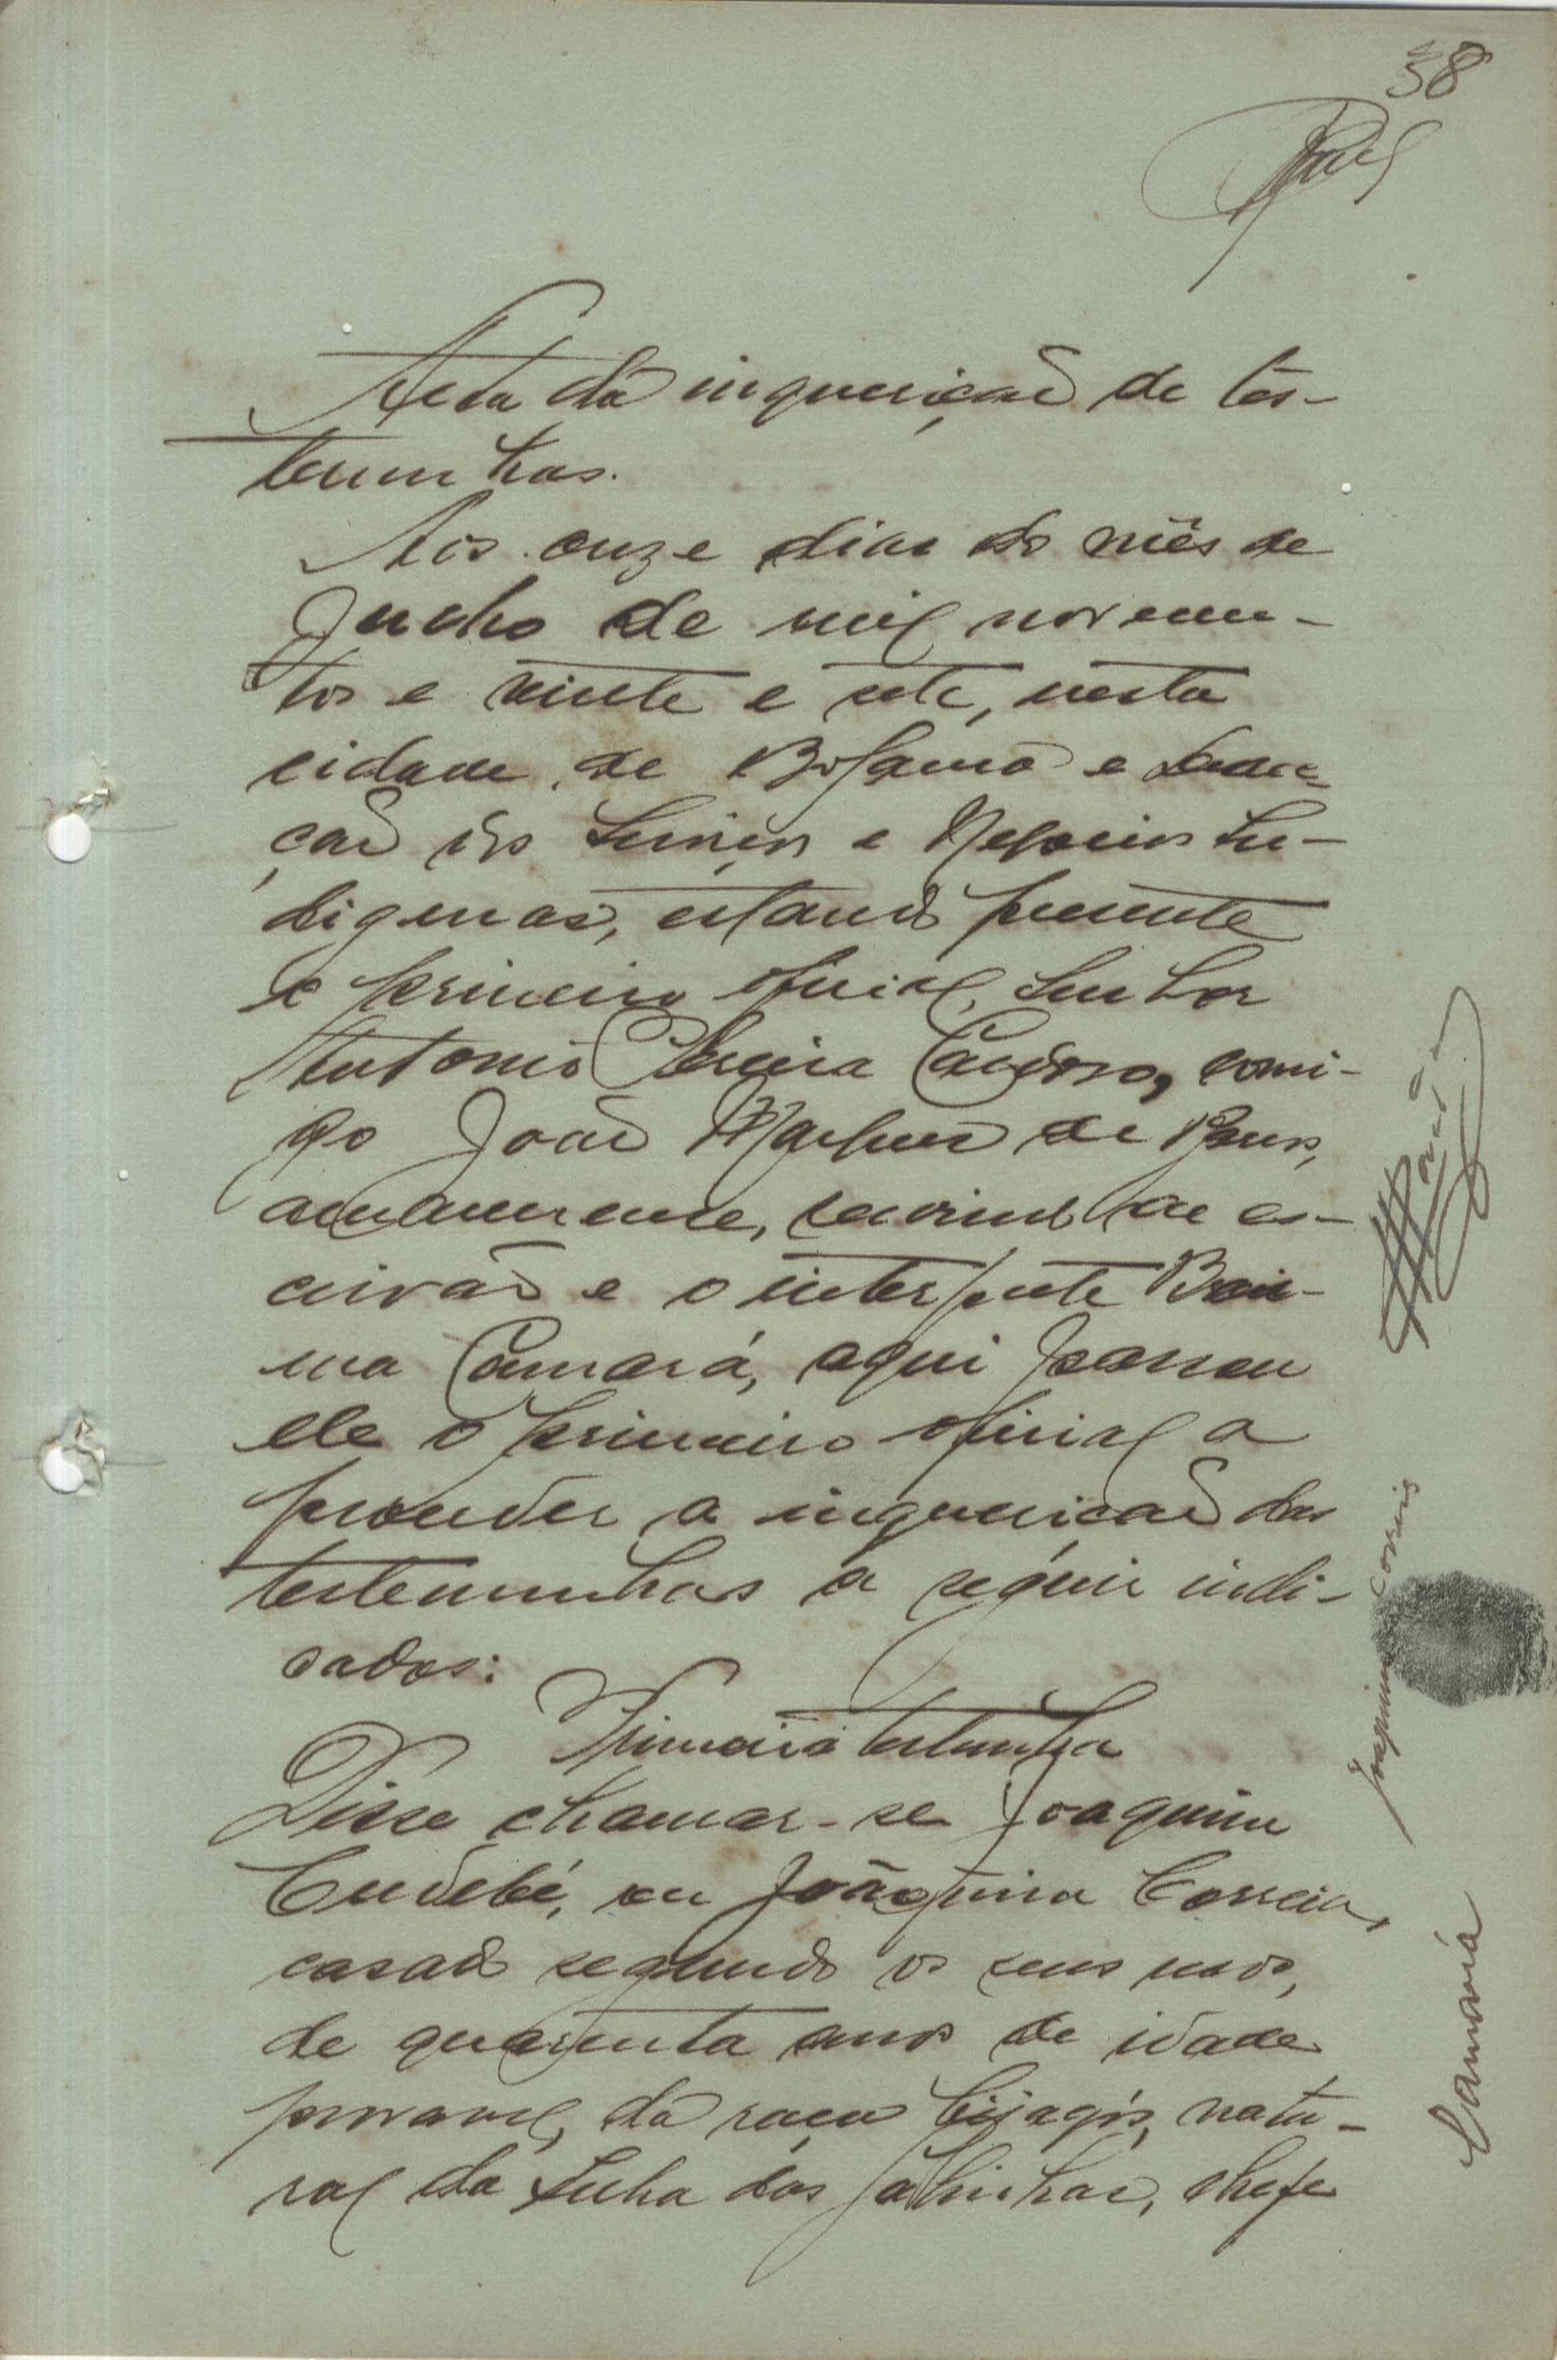 38
Acta da inquirição de tes-
temunhas.
Aos onze dias do mês de
Junho de mil novecen-
tos e vinte e sete, nesta
cidade de Bolama e Direc-
ção dos Serviços e Negocios In-
digenas, estando presente
o primeiro oficial, Senhor
Antonio Pereira Cardoso, comi-
go João de
servindo de es-
crivão e o interprete Brai-
ma Camará, aqui passou
ele o primeiro oficial a
proceder a inquirição das
testemunhas a seguir indi-
cadas:
Primeira testemunha
Disse chamar-se Joaquim
ou Joaquim Correia,
casado segundo os seus usos,
de quarenta anos de idade
provavel, da raça bijagós, natu-
ral da Ilha das Galinhas, chefe
Joaquim Correia
Camará